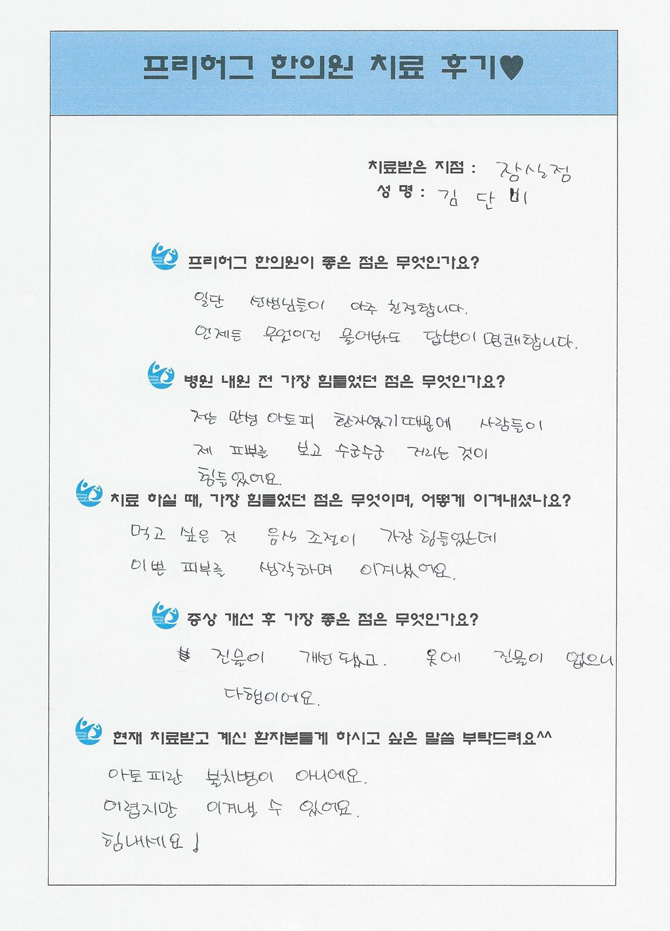 프리허그 한의원 치료 후기♥
치료받은 지점 : 잠실점
성 명 : 김 단 비
프리허그 한의원이 좋은 점은 무엇인가요?
일단 선생님들이 아주 친절합니다.
언제든 무엇이건 물어봐도 답변이 명쾌합니다.
병원 내원 전 가장 힘들었던 점은 무엇인가요?
저는 만성 아토피 환자였기때문에 사람들이
제 피부를 보고 수군수군 거리는 것이
힘들었어요.
치료 하실 때, 가장 힘들었던 점은 무엇이며, 어떻게 이겨내셨나요?
먹고 싶은 것 음식 조절이 가장 힘들었는데
이쁜 피부를 생각하며 이겨냈어요.
증상 개선 후 가장 좋은 점은 무엇인가요?
진물이 개선 됐고. 옷에 진물이 없으니
다행이에요.
현재 치료받고 계신 환자분들게 하시고 싶은 말씀 부탁드려요^^
아토피란 불치병이 아니에요.
어렵지만 이겨낼 수 있어요.
힘내세요!